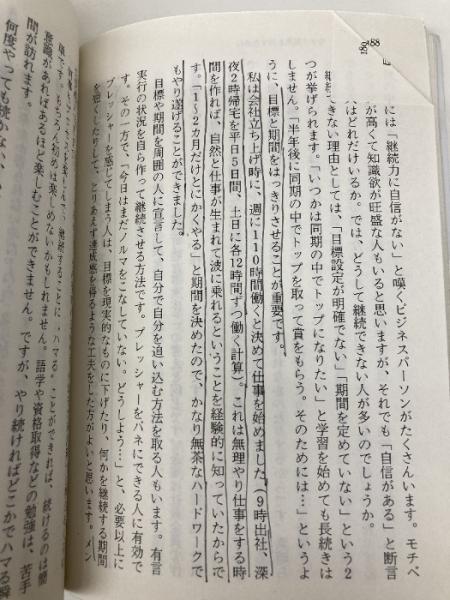 には「継続力に自信がない」と嘆くビジネスパーソンがたくさんいます。モチベ
が高くて知識欲が旺盛な人もいると思いますが、それでも「自信がある」と断言
はどれだけいるか。では、どうして継続できない人が多いのでしょうか。
できない理由としては、「目標設定が明確でない」「期間を定めていない」という２
つが挙げられます。「いつかは同期の中でトップになりたい」と学習を始めても長続きは
しません。「半年後に同期の中でトップを取って賞をもらう。そのためには…」というよ
うに、目標と期間をはっきりさせることが重要です。
私は会社立ち上げ時に、週に１１０時間働くと決めて仕事を始めました（９時出社、深
夜２時帰宅を平日５日間、土日に各１２時間ずつ働く計算）。これは無理やり仕事をする時
間を作れば、自然と仕事が生まれて波に乗れるということを経験的に知っていたからで
す。「１～２カ月だけとにかくやる」と期間を決めたので、かなり無茶なハードワークで
もやり遂げることができました。
目標や期間を周囲の人に宣言して、自分で自分を追い込む方法を取る人もいます。有言
実行の状況を自ら作って継続させる方法です。プレッシャーをバネにできる人に有効で
す。その一方で、「今日はまだノルマをこなしていない。どうしよう…」と、必要以上に
プレッシャーを感じてしまう人は、目標を現実的なものに下げたり、何かを継続する期間
を短くしたりして、とりあえず達成感を得るような工夫をした方がよいと思います。メン
継続することに〝ハマる〟ことができれば、続けるのは簡
単です。もちろん初めは楽しめないかもしれません。語学や資格取得などの勉強は、苦手
意識があればあるほど楽しむことができません。ですが、やり続ければどこかでハマる瞬
間が訪れます。
何度やっても続かない
88